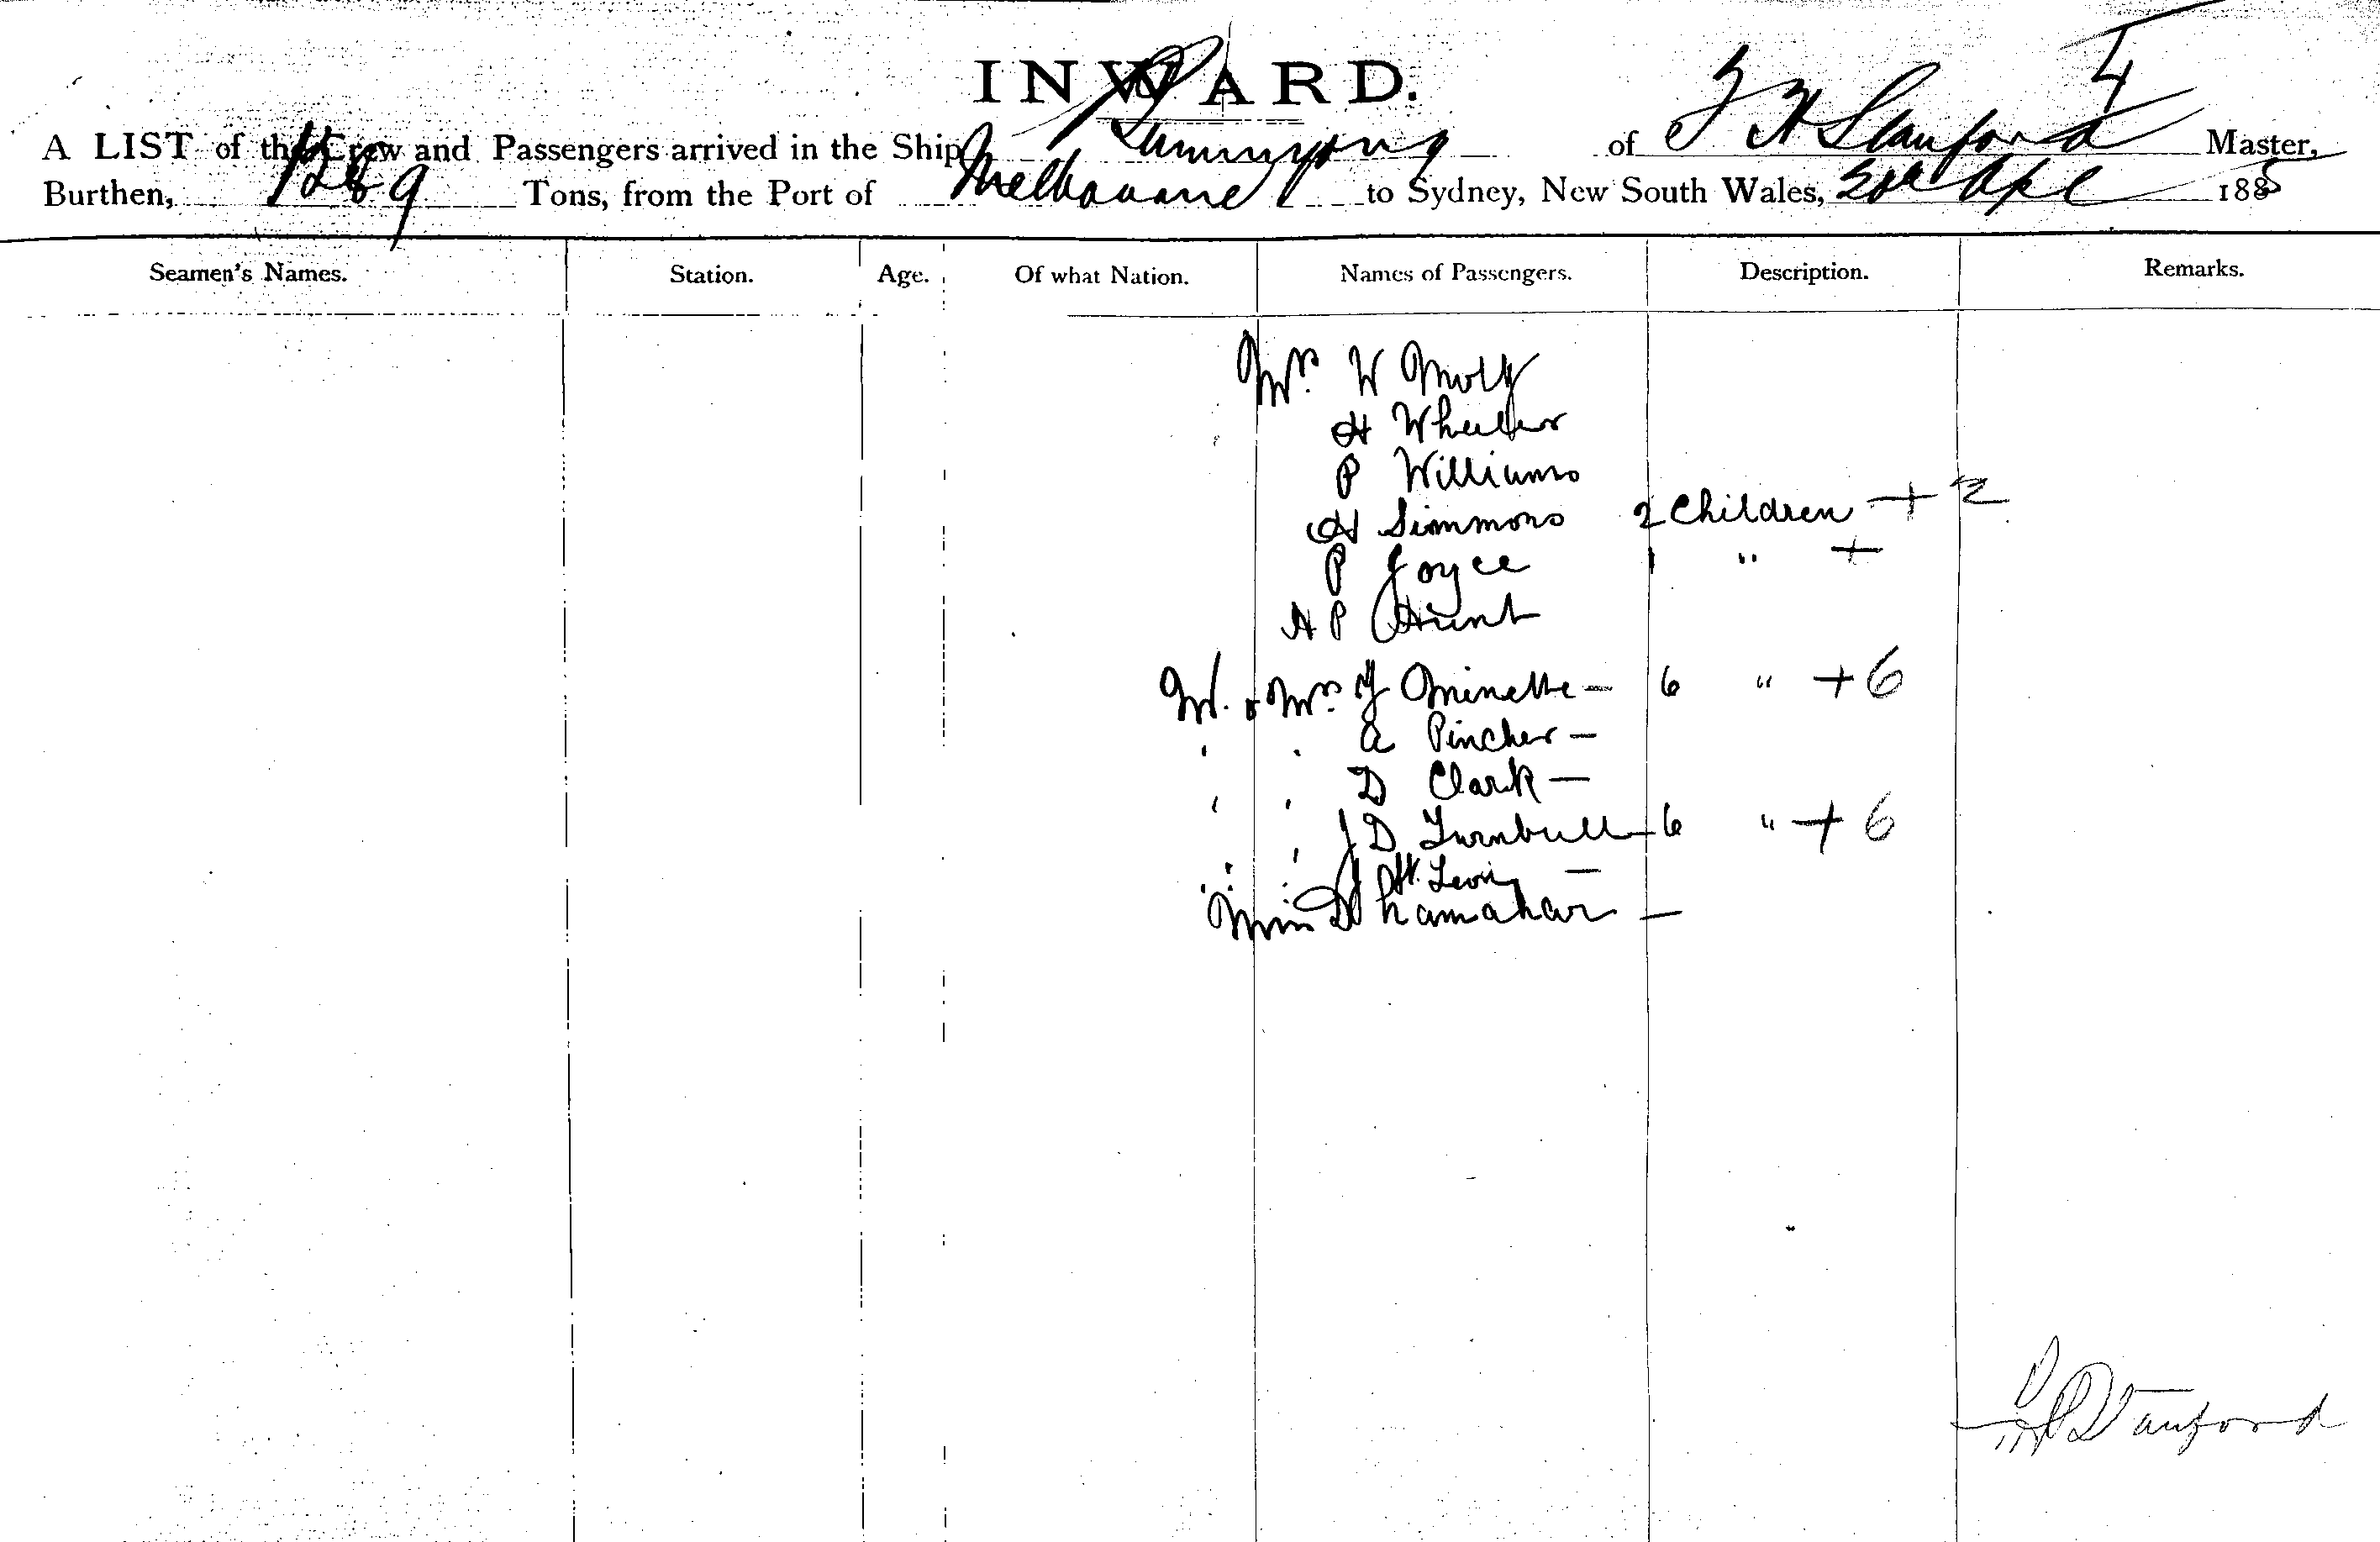 INWARD.
4
A LIST of the Crew and Passengers arrived in the Ship Buninyong of T H Stanford Master,
Burthen, 1289 Tons, from the Port of Melbourne to Sydney, New South Wales, Apl 1885
Seamen's Names. Station. Age. Of what Nation. Names of Passengers. Description. Remarks.
Mrs. W
H Wheeler
P Williams
H Simmons 2 Children + 2
P Joyce 1 " +
A P Hunt
M. & Mrs. J Minette — 6 " + 6
' ' A Pincher —
' ' D Clark —
' ' J D Turnbull — 6 " + 6
J —
Miss —
Stanford